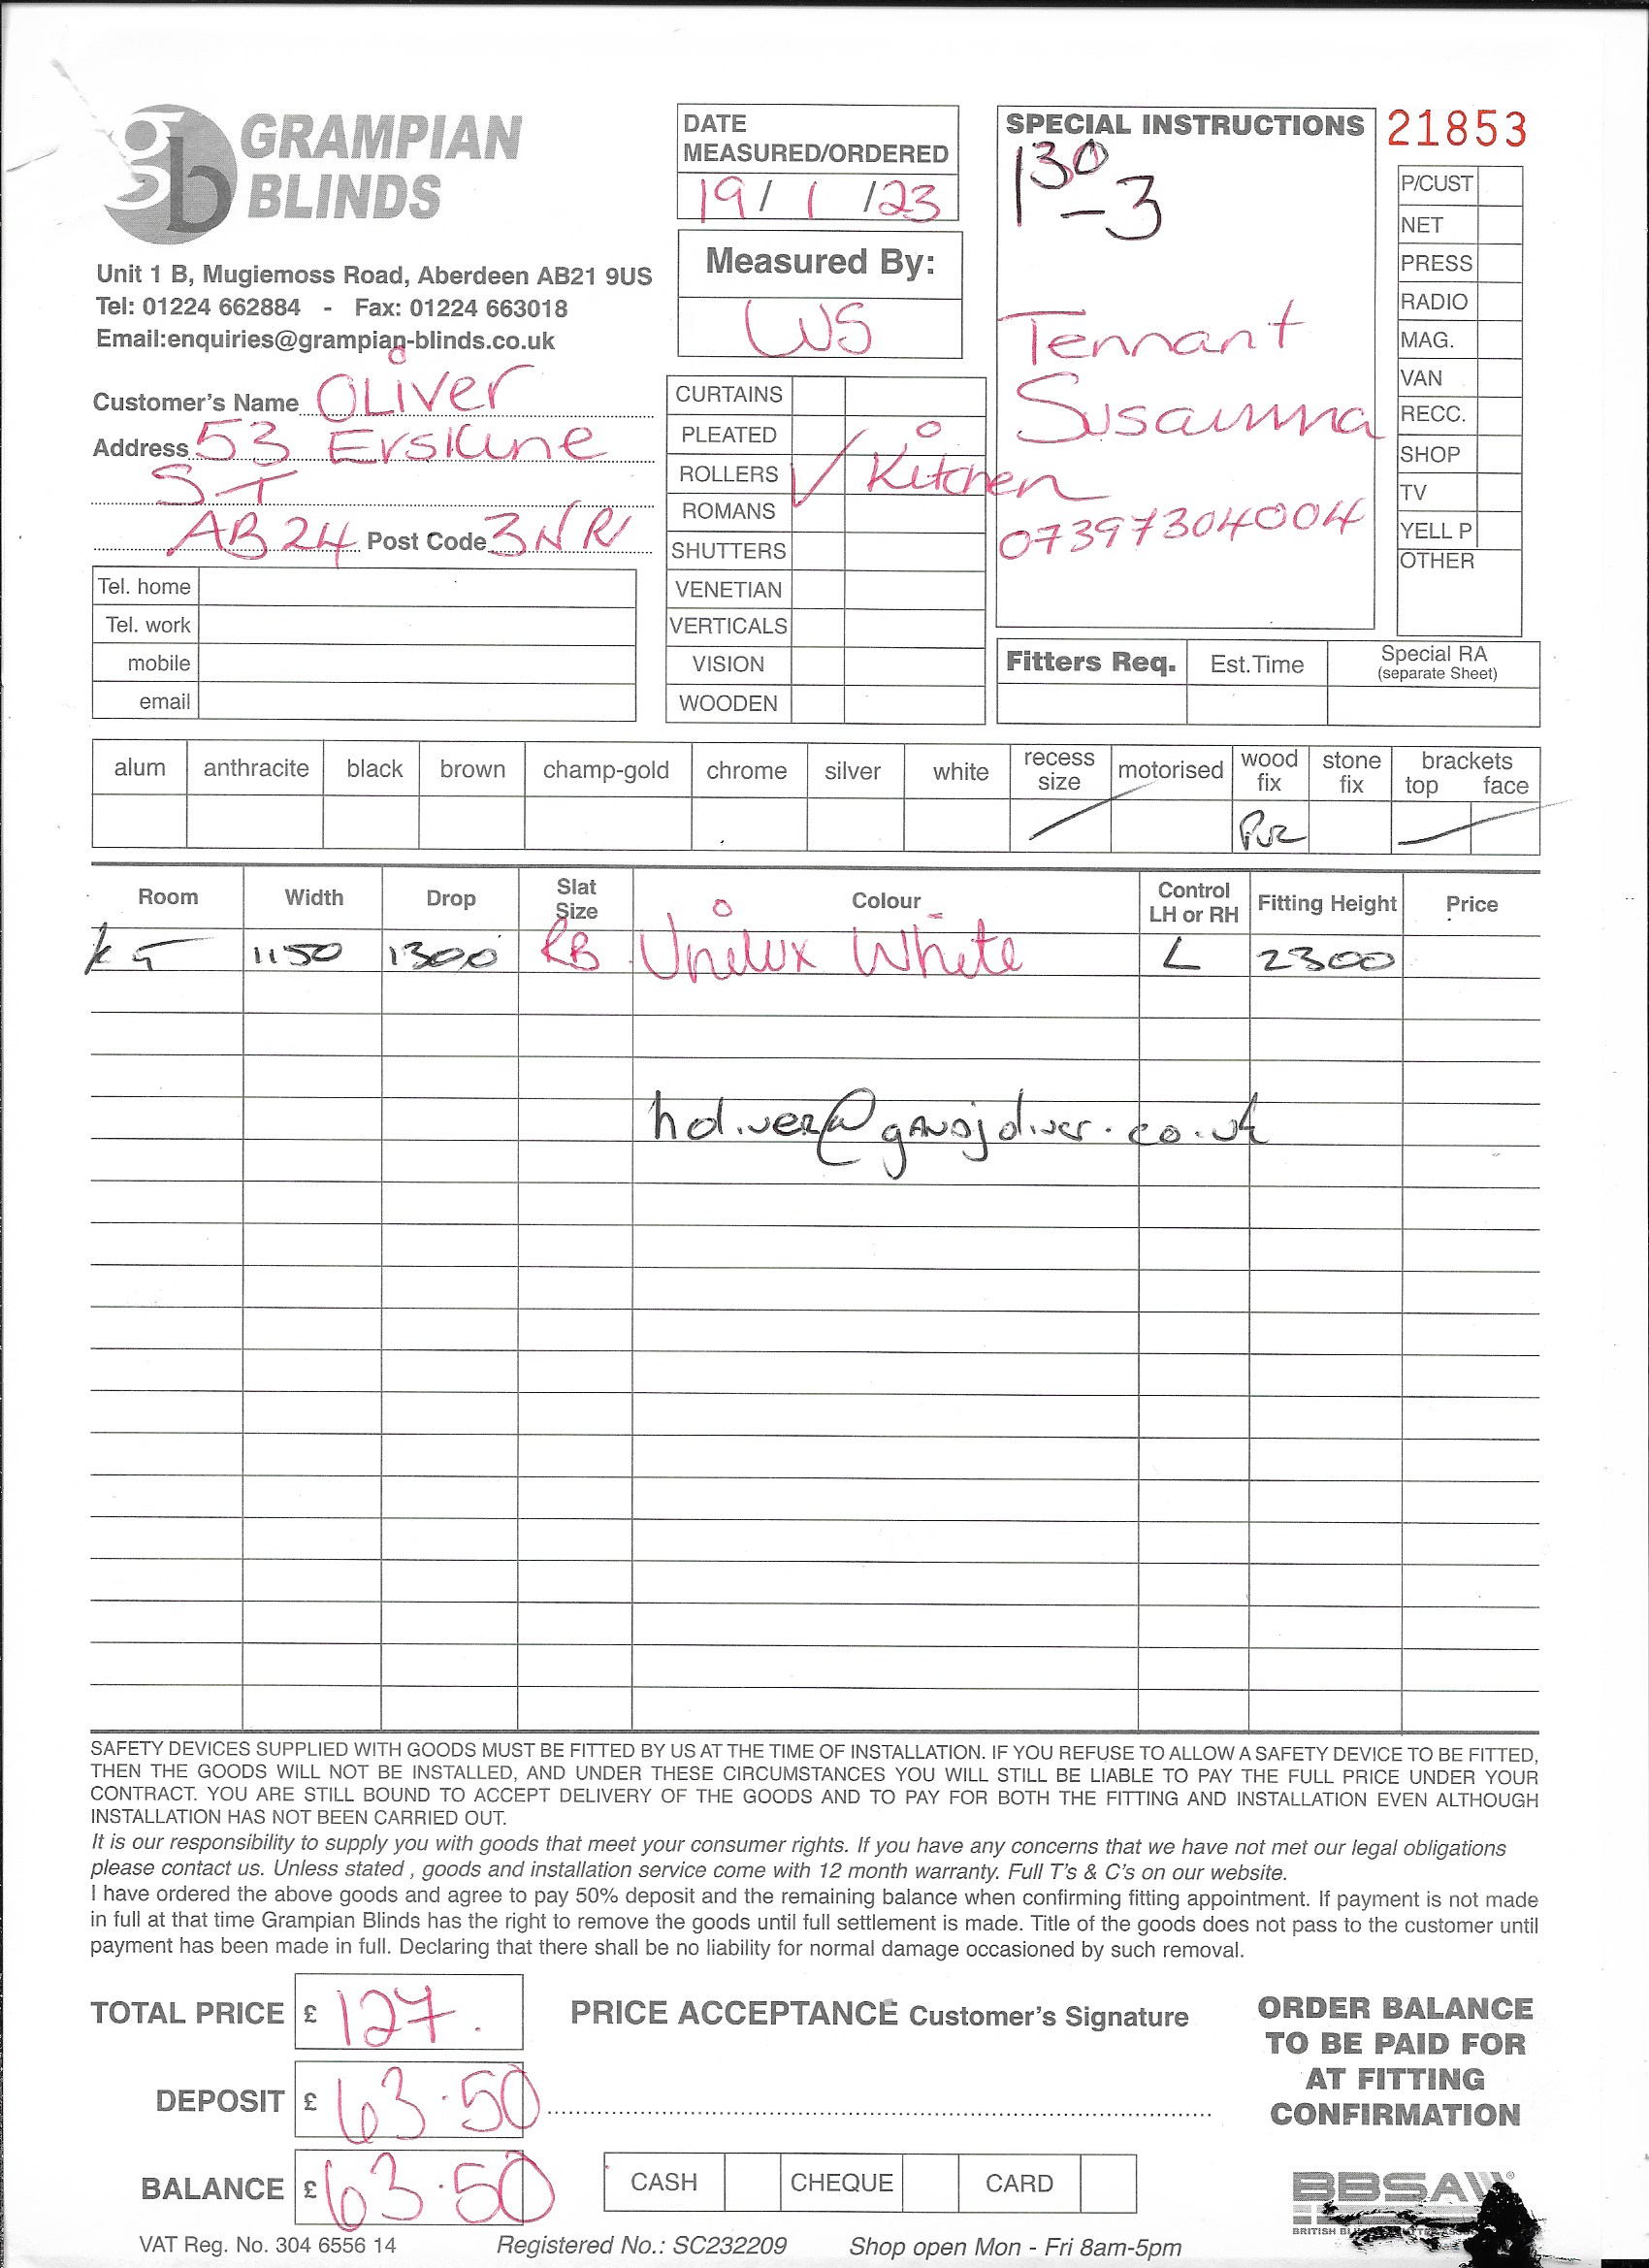 GRAMPIAN
BLINDS
Unit 1 B, Mugiemoss Road, Aberdeen AB21 9US
Tel: 01224 662884 - Fax: 01224 663018
Email:enquiries@grampian-blinds.co.uk
DATE
MEASURED/ORDERED
19 / 1 / 23
Measured By:
WS
SPECIAL INSTRUCTIONS
1 30 - 3
Tennant
Susanna
07397304004
21853
P/CUST
NET
PRESS
RADIO
MAG.
VAN
RECC.
SHOP
TV
YELL P
OTHER
Customer's Name OLiver
Address 53 Erskine
ST
AB24 Post Code 3NR
Tel. home
Tel. work
mobile
email
CURTAINS
PLEATED
ROLLERS ✓ Kitchen
ROMANS
SHUTTERS
VENETIAN
VERTICALS
VISION
WOODEN
Fitters Req. Est.Time Special RA
(separate Sheet)
alum anthracite black brown champ-gold chrome silver white recess size motorised wood fix stone fix brackets top face
Room Width Drop Slat Size Colour Control LH or RH Fitting Height Price
1150 1300 RB Unilux White L 2300
SAFETY DEVICES SUPPLIED WITH GOODS MUST BE FITTED BY US AT THE TIME OF INSTALLATION. IF YOU REFUSE TO ALLOW A SAFETY DEVICE TO BE FITTED,
THEN THE GOODS WILL NOT BE INSTALLED, AND UNDER THESE CIRCUMSTANCES YOU WILL STILL BE LIABLE TO PAY THE FULL PRICE UNDER YOUR
CONTRACT. YOU ARE STILL BOUND TO ACCEPT DELIVERY OF THE GOODS AND TO PAY FOR BOTH THE FITTING AND INSTALLATION EVEN ALTHOUGH
INSTALLATION HAS NOT BEEN CARRIED OUT.
It is our responsibility to supply you with goods that meet your consumer rights. If you have any concerns that we have not met our legal obligations
please contact us. Unless stated , goods and installation service come with 12 month warranty. Full T's & C's on our website.
I have ordered the above goods and agree to pay 50% deposit and the remaining balance when confirming fitting appointment. If payment is not made
in full at that time Grampian Blinds has the right to remove the goods until full settlement is made. Title of the goods does not pass to the customer until
payment has been made in full. Declaring that there shall be no liability for normal damage occasioned by such removal.
TOTAL PRICE £ 127.
DEPOSIT £ 63.50
BALANCE £ 63.50
PRICE ACCEPTANCE Customer's Signature
CASH CHEQUE CARD
ORDER BALANCE
TO BE PAID FOR
AT FITTING
CONFIRMATION
BBSA
BRITISH
VAT Reg. No. 304 6556 14 Registered No.: SC232209 Shop open Mon - Fri 8am-5pm